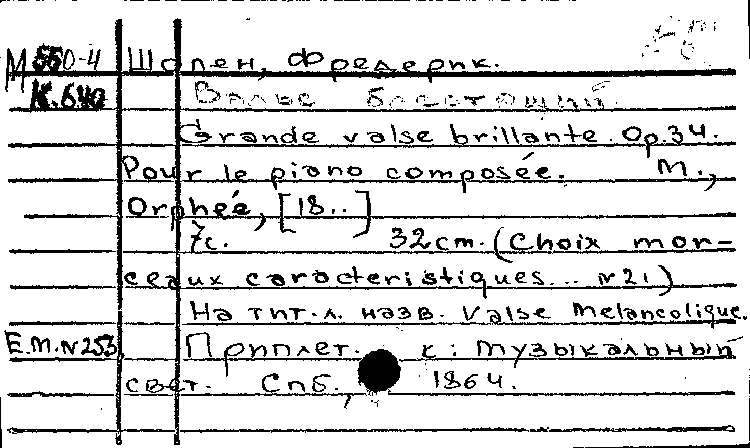 М 550-4 Шопен, Фредерик.
К.640 Вальс блестящий.
Grande valse brillante. Op.34.
Pour le piano composée. М.,
Orpheé, [18..]
7с. 32cm. (Choix mor-
ceaux caracteristiques... №21)
На тит.л. назв. Valse melancolique.
Е.М.№253 Приплет. к: Музыкальный
свет. Спб., 1864.